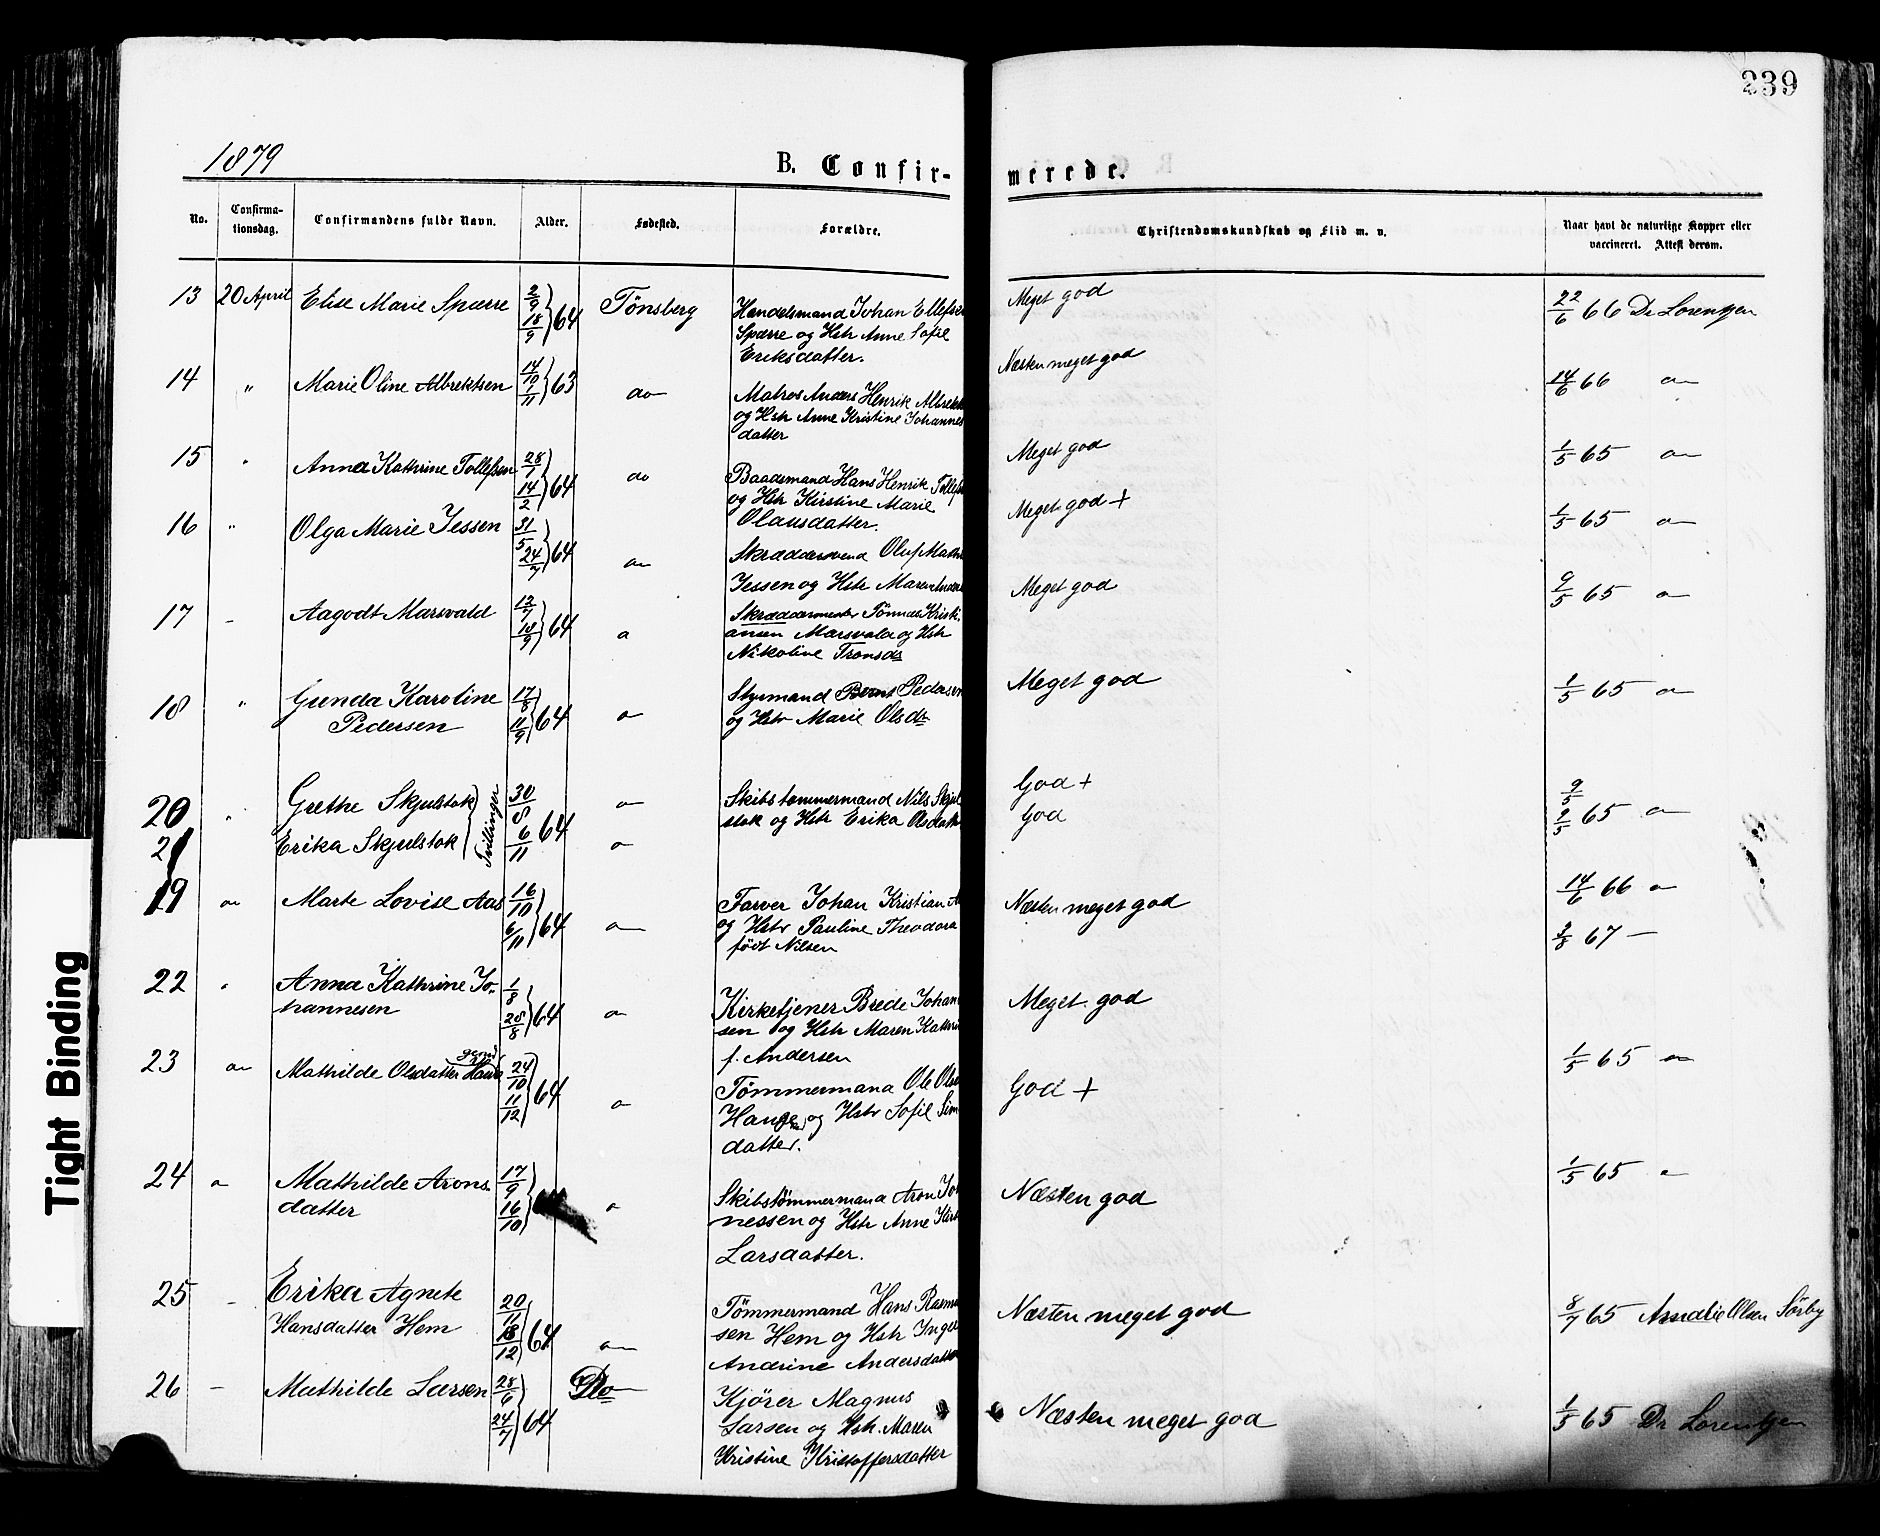 239
1879
B. Confir-
merede.
No.
Confirma-
tionsdag.
Confirmandens fulde Navn.
Alder.
Fødested.
Forældre.
Christendomskundskab og Flid m. v.
Naar havt de naturlige Kopper eller
vaccineret. Attest derom.
13 20 April Elise Marie Spærre 2/9 18/9 } 64 Tønsberg
Handelsmand Johan Ellefsen
Spærre og Hstr Anne Sofie
Eriksdatter.
Meget god
22/6 66 Dr Lorentzen
14 " Marie Oline Albrektsen 14/10 1/11 } 63 do
Matros Anders Henrik Albrekt
og Hstr Anne Kristine Johannes
datter
Næsten meget god
14/6 66 do
15 " Anna Kathrine Tollefsen 28/1 14/2 } 64 do
Baadsmand Hans Henrik Tollefs
og Hstr Kirstine Marie
Olausdatter.
Meget god
1/5 65 do
16 " Olga Marie Jessen 31/5 24/7 } 64 do
Skræddersvend Oluf Math
Jessen og Hstr Maren Anders
Meget god +
1/5 65 do
17 - Aagodt Marsvald 12/7 18/9 } 64 do
Skræddermester Tönnes Kristi
ansen Marsvald og Hstr
Nikoline Tronsdr
Meget god
9/5 65 do
18 " Gunda Karoline
Pedersen
17/8 11/9 } 64 do
Styrmand Bernt Pedersen
og Hstr Marie Olsdr
Meget god
1/5 65 do
20 " Grethe Skjulstok
21 Erika Skjulstok
Tvillinger
30/8 6/11 64 do
do
Skibstømmermand Nils Skjul
stok og Hstr Erika Olsdatt
God +
God
9/5
9/5 65 do
19 do Marte Lovise Aas 16/10 6/11 } 64 do
Farver Johan Kristian A
og Hstr Pauline Theodora
født Nilsen
Næsten meget god
14/6 66 do
22 " Anna Kathrine Jo-
hannesen
1/8 28/8 } 64 do
Kirketjener Brede Johan
sen og Hstr Maren Kathri
f. Andersen
Meget god
3/8 67 -
23 do Mathilde Olsdatter 24/10 11/12 } 64 do
Tømmermand Ole Olse
og Hstr Sofie Sim
datter.
God +
1/5 65 do
24 do Mathilde Arons-
datter
17/9 16/10 } do
Skibstømmermand Aron Jo
nessen og Hstr Anne
Larsdatter.
Næsten god
1/5 65 do
25 - Erika Agnete
Hansdatter Hem
20/11 18/12 } 64 do
Tømmermand Hans Rasmu
sen Hem og Hstr Inger
Andrine Andersdatter
Næsten meget god
8/7 65 Amalie Olsen Sörby
26 - Mathilde Larsen 28/6 24/7 } 64 Do
Kjører Magnus
Larsen og Hstr. Maren
Kristine Kristoffersdatter
Næsten meget god
1/5 65 Dr Lorentzen
Tight Binding